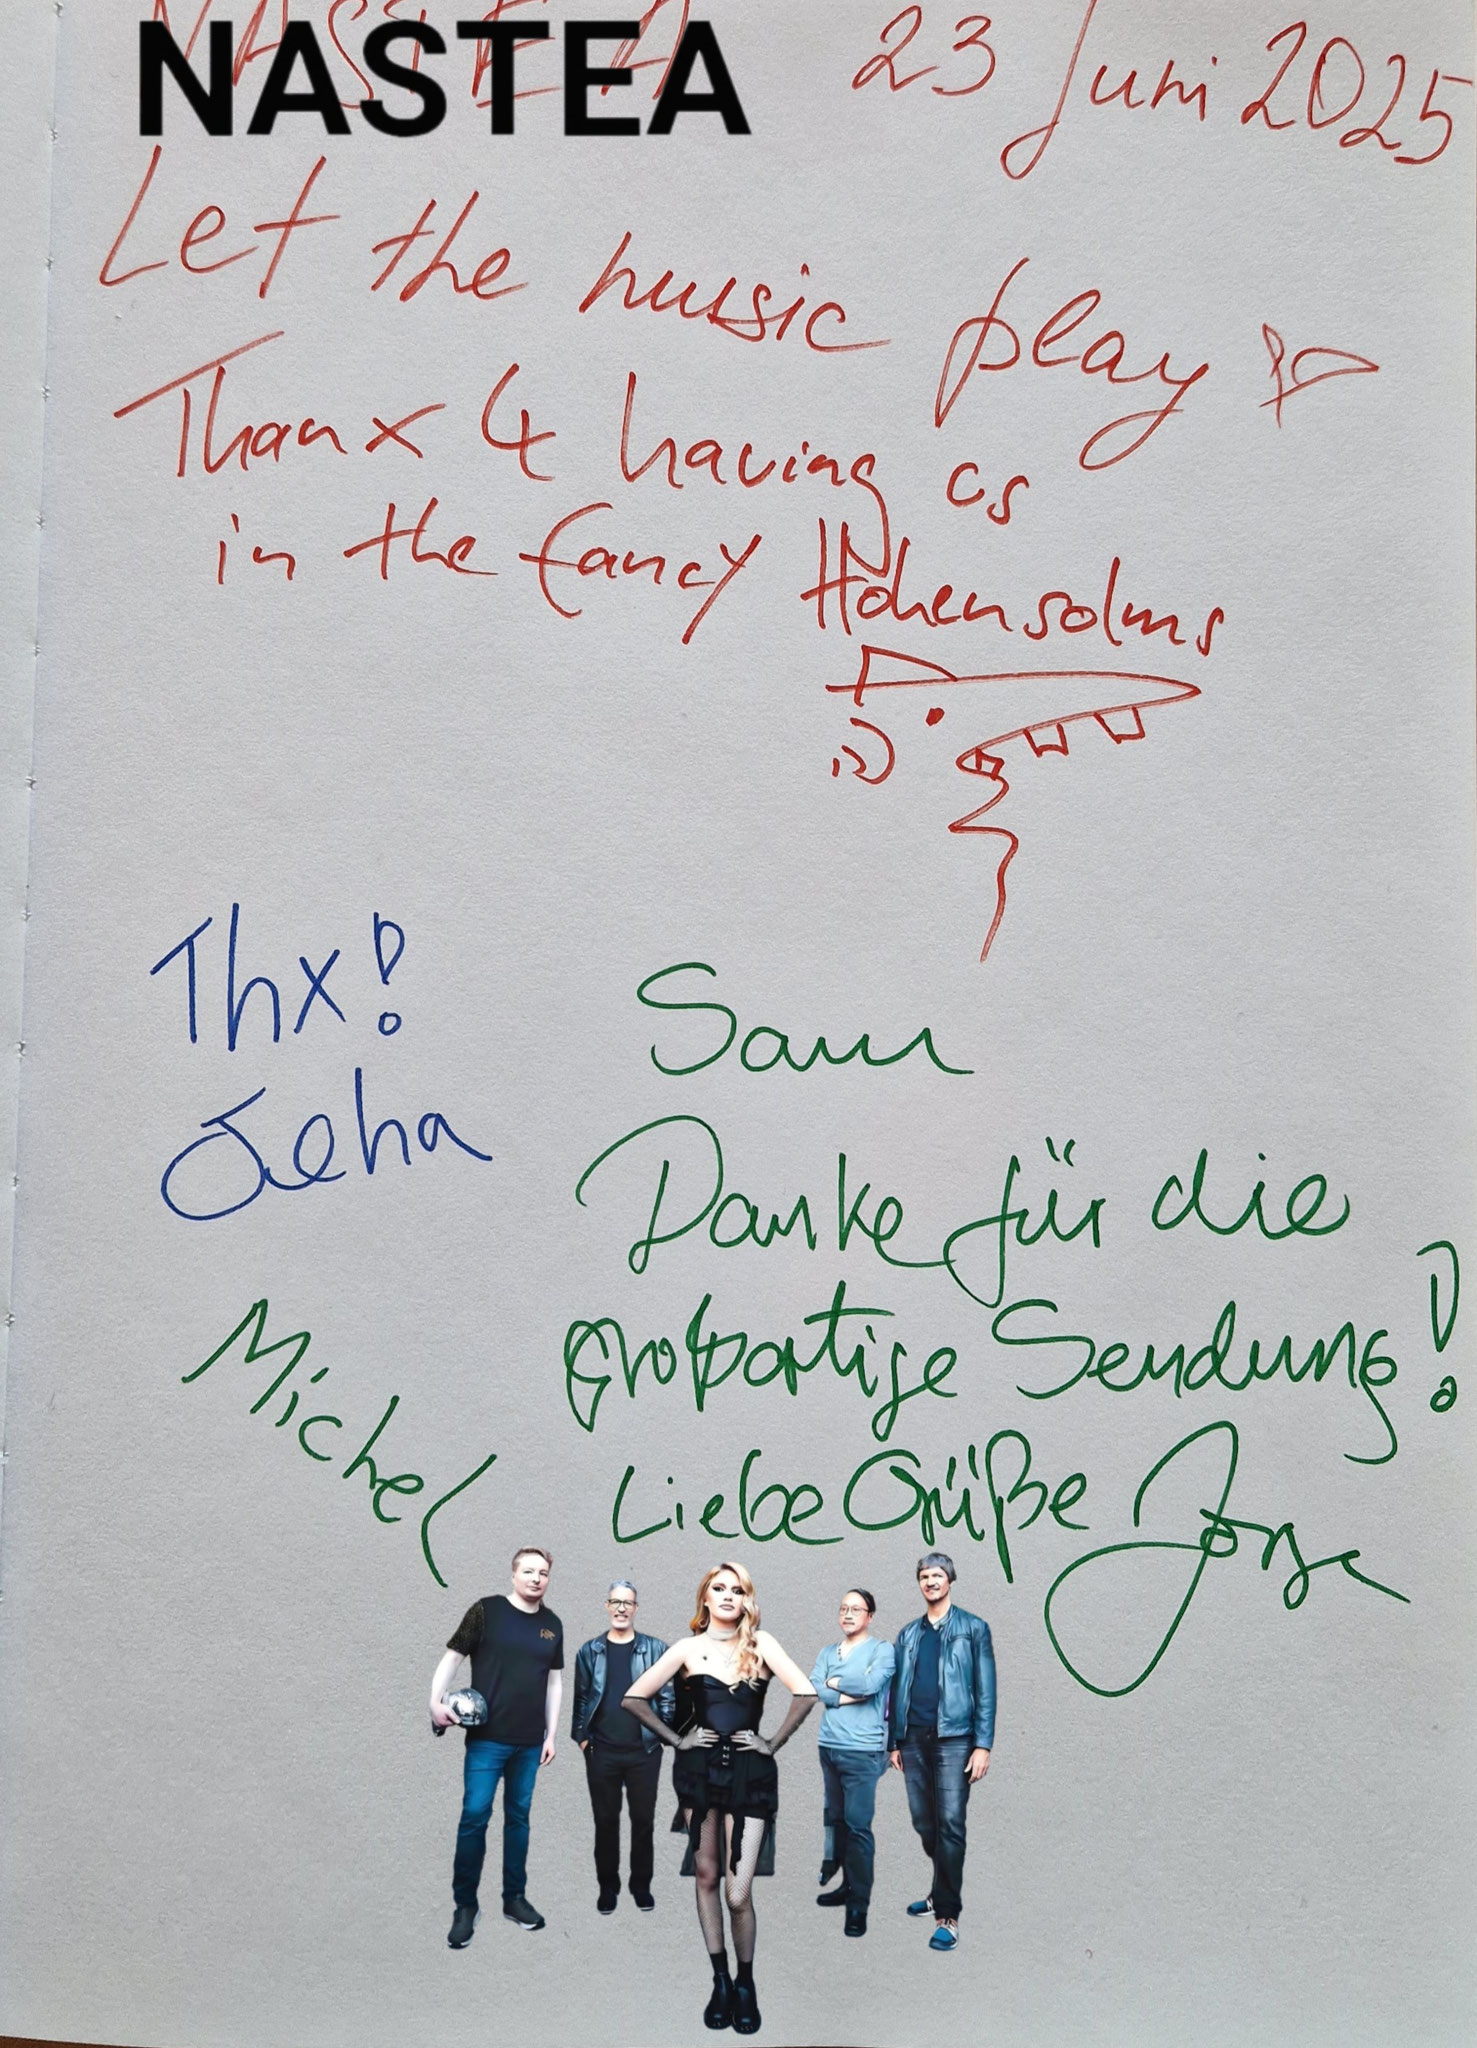 NASTEA 23 Juni 2025
NASTEA
Let the music play
Thanx 4 having us
in the fancy Hohensolms
Thx!
Jeha
Sam
Danke für die
großartige Sendung!
Michel
Liebe Grüße